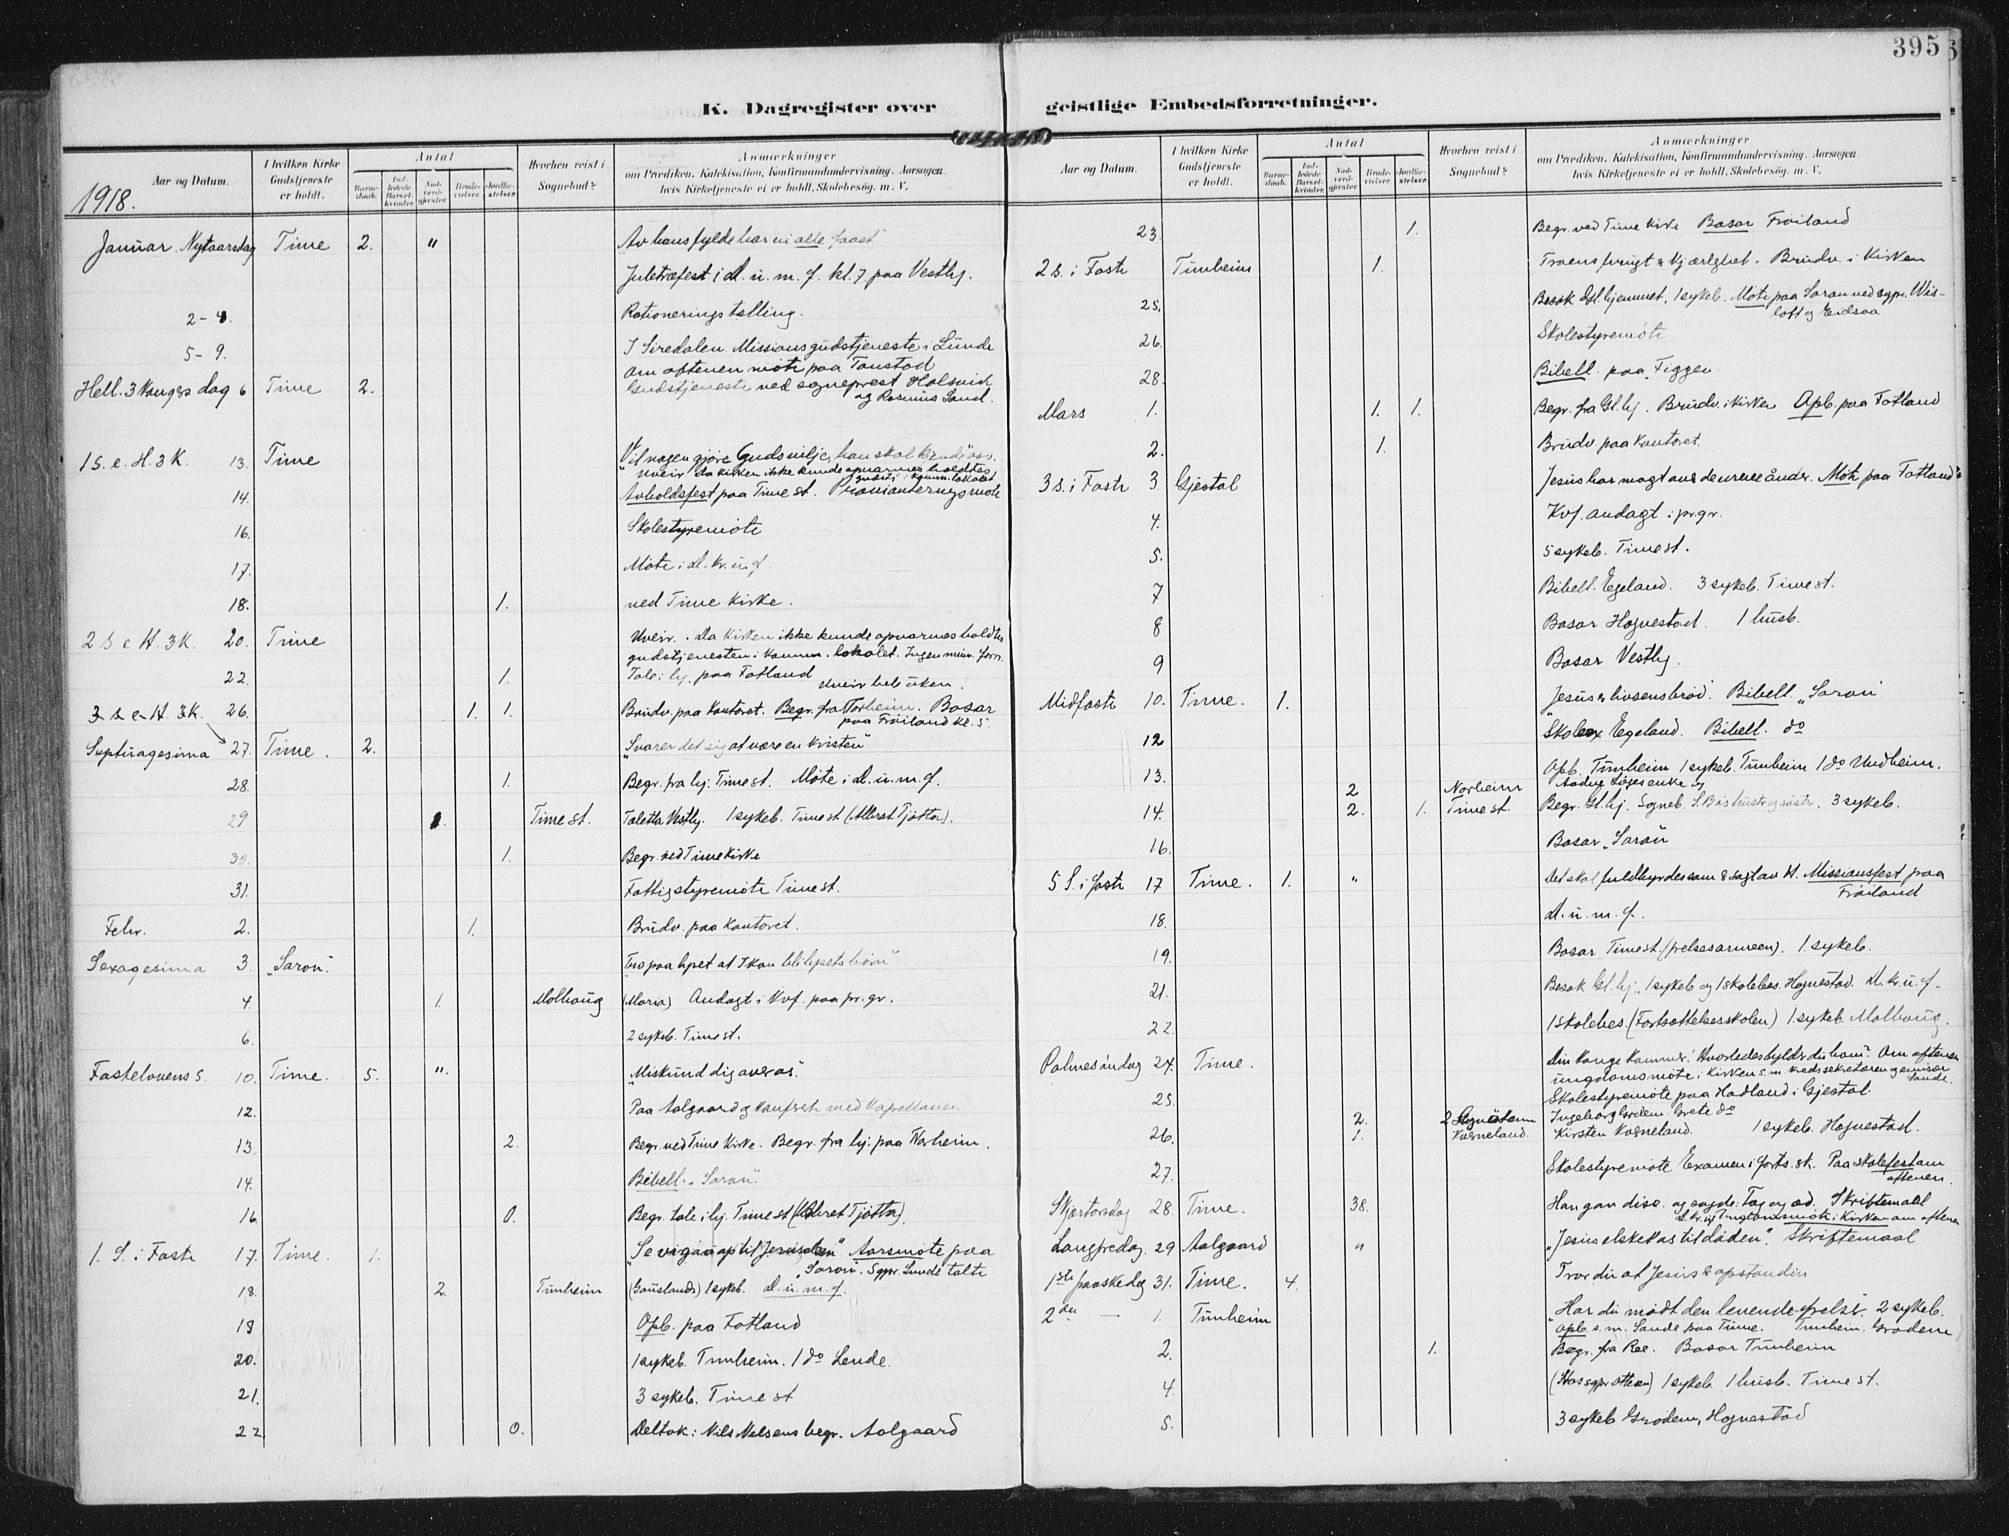 395
K. Dagregister over
Aar og Datum.
I hvilken Kirke Gudstjeneste er holdt.
Antal
Barnedaab.
Indledede Barselkvinder.
Nadverdgjester.
Brudevielser.
Jordfæstelser.
Hvorhen reist i Sognebud?
Anmærkninger
om Prædiken, Katekisation, Konfirmandundervisning, Aarsagen,
hvis Kirketjeneste ei er holdt, Skolebesøg, m. V.
1918.
Januar Nytaarsdag Time 2. " Av hans fylde har vi alle faaet
Juletræfest i d. u. m. f. kl. 7 paa Vestly.
2-4. Rationeringstelling.
5-9. I Siredalen Missionsgudstjeneste i Lunde
om aftenen møte paa Tonstad
Hell. 3 Kongers dag 6 Time 2. Gudstjeneste ved sogneprest Holsvik
og Rasmus Sand.
1 S. e. H. 3 K. 13. Time Vil nogen gjøre Guds vilje, han skal kjende osv.
Uveir da kirken ikke kunde opvarmes holdtes
14. Avholdsfest paa Time st. Provianteringsmøte
16. Skolestyremøte
17. Møte i d. kr. u. f.
18. 1. ved Time kirke.
2 S e H. 3 K. 20. Time Uveir. Da kirken ikke kunde opvarmes holdtes
gudstjenesten i komm. lokalet. Ingen
22. 1. Tale i hj. paa Fotland
Uveir hele uken.
3 s. e. H. 3 K. 26. 1. 1. Brudv. paa Kontoret. Begr. fra Norheim. Basar
paa Frøiland kl. 5.
Septuagesima 27. Time. 2. "Svarer det sig at være en kristen"
28. 1. Begr. fra hj. Time st. Møte i d. u. m. f.
29 1. Time st. Toletta Vestly. 1 sykeb. Time st (Albret Tjøtta).
30. 1. Begr. ved Time Kirke
31. Fattigstyremøte Time st.
Febr. 2. 1. Brudv. paa Kontoret.
Sexagesima 3. "Saron". "Tro paa lyset at I kan bli lysets børn"
4. 1. Molhaug (Maria) Andagt i Kvf. paa pr. gr.
6. 2 sykeb. Time st.
Fastelavens S. 10. Time. 5. " "Miskund dig over os".
12. Paa Aalgaard og konfrerte med kapellanen
13. 2. Begr. ved Time Kirke. Begr. fra hj. paa Norheim.
14. Bibell. "Saron".
16. 0. Begr. tale i hj. Time st (Albret Tjøtta).
1. S. i Faste 17. Time. 1. "Se vi gaar op til Jerusalem" Aarsmøte paa
"Saron". Sgpr. Lunde talte
18. 2. Tunheim (Gauslands) 1 sykeb. d. u. m. f.
19 Opb. paa Fotland
20. 1 sykeb. Tunheim. 1 do Lende.
21. 3 sykeb. Time st
22. 0. Deltok i Nils Nelsens begr. Aalgaard
geistlige Embedsforretninger.
Aar og Datum.
I hvilken Kirke Gudstjeneste er holdt.
Antal
Barnedaab.
Indledede Barselkvinder.
Nadverdgjester.
Brudevielser.
Jordfæstelser.
Hvorhen reist i Sognebud?
Anmærkninger
om Prædiken, Katekisation, Konfirmandundervisning, Aarsagen,
hvis Kirketjeneste ei er holdt, Skolebesøg, m. V.
23. 1. Begr. ved Time Kirke Basar Frøiland
2 s. i Faste Tunheim 1. Troens frugt er kjærlighet. Brudv. i Kirken
25. Besøk Gl. hjemmet, 1 sykeb. Møte paa Saron ved sgpr. Wis-
løff og Eidsaa
26. Skolestyremøte
28. Bibell. paa Figgen
Mars 1. 1. 1. Begr. fra Gl. hj. Brudv. i kirken Opb. paa Fotland
2. 1. Brudv paa Kontoret.
3 s. i Faste 3. Gjestal Jesus har magt over de urene ånder. Møte paa Fotland
4. Kvf. andagt i pr. gr.
5. 5 sykeb. Time st.
7 Bibell. Egeland. 3 sykeb. Time st.
8 Basar Hognestad. 1 husb.
9 Basar Vestly.
Midfaste 10. Time. 1. "Jesus er livsens brød". Bibell. "Saron"
12 Skoleex. Egeland. Bibell. do
13. 2 Norheim Opb. Tunheim 1 sykeb. Tunheim 1 do Undheim.
14. 2. 1. Time st. Begr. Gl. hj. Sogneb. 3 sykeb.
16. Basar "Saron"
5 S. i faste 17 Time. 1. " Det skal fuldbyrdes som er sagt av Missionsfest paa
Frøiland
18. d. u. m. f.
19. Basar Time st. (frelsesarmeen). 1 sykeb.
21. Besøk Gl. hj., 1 sykeb og 1 skolebes. Hognestad. d. kr. u. f.
22. 1 Skolebes. (Fortsættelsesskolen) 1 sykeb. Molhaug.
Palmesøndag 24. Time. Din Konge kommer! Hvorledes hylder du ham? Om aftenen
ungdomsmøte i Kirken s. m kredssekretæren og emissær
Sande.
25. Skolestyremøte paa Hadland i Gjestal
26. 2. 1. Kogneland. Ingeborg Grødem. Grete do
Kirsten Kogneland. 1 sykeb. Hognestad.
27. Skolestyremøte Examen i forts. sk. Paa skolefest om
aftenen.
Skjærtorsdag 28. Time. 38. Han gav disc. og sagde: Tag og æd. Skriftemaal
d. kr. uf Ungdomsmøte i Kirken om aftenen
Langfredag. 29 Aalgaard " "Jesus elsket os til døden". Skriftemaal
1ste paaskedag 31. Time. 4. Tror du at Jesus er opstanden
2den — 1. Tunheim "Har du mødt den levende frelser 2 sykeb.
Opb. s. m. Sande paa Time. Tunheim. Grødem
2. 1. Begr. fra Ree. Basar Tunheim
4. 1 sykeb 1 husb. Time st.
5. 3 sykeb Grødem, Hognestad